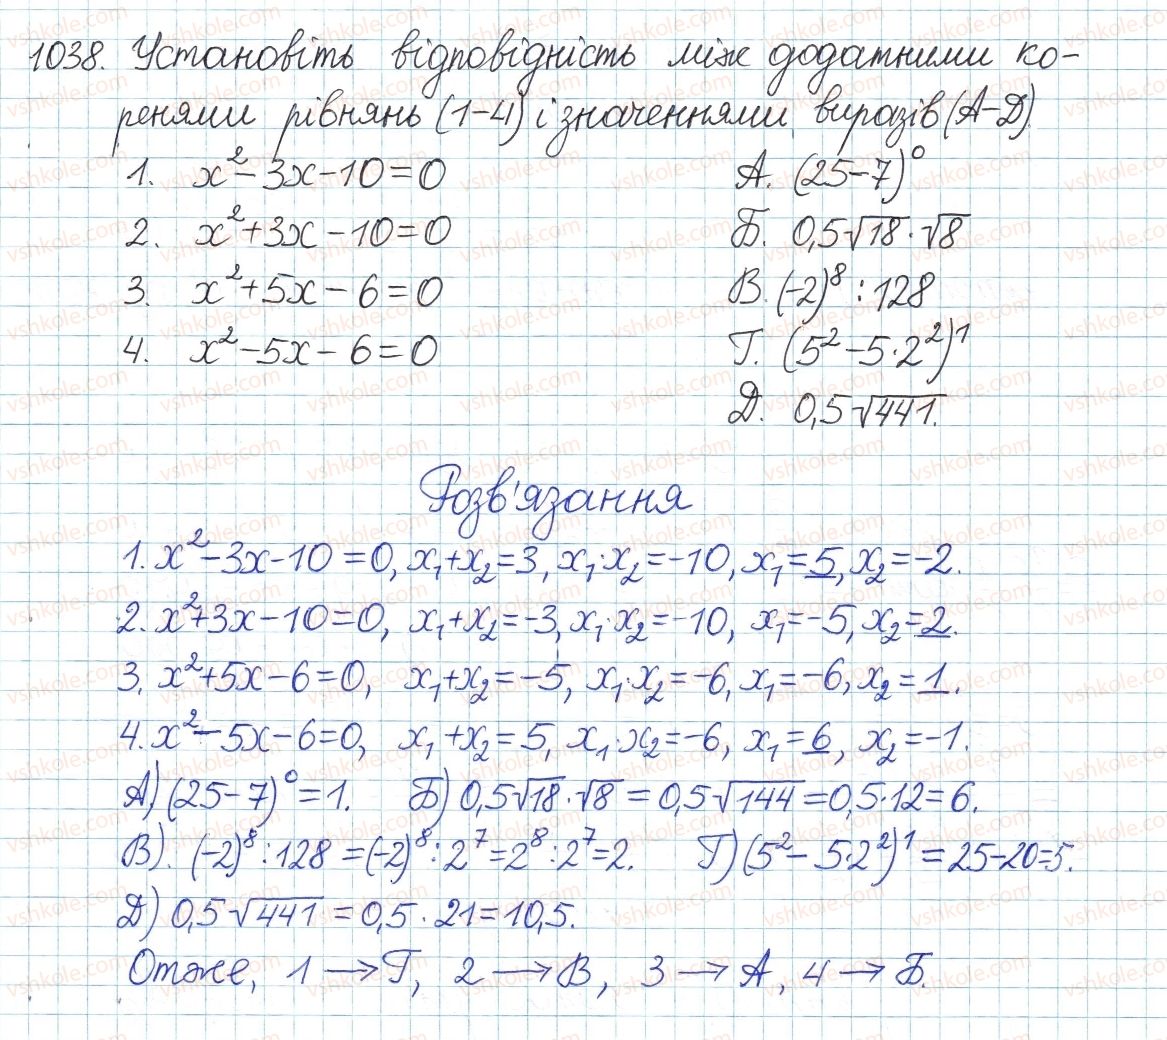 1038. Установіть відповідність між додатними ко-
ренями рівнянь (1-4) і значеннями виразів (А-Д)
1. x² - 3x - 10 = 0 А. (25-7)⁰
2. x² + 3x - 10 = 0 Б. 0,5√18 · √8
3. x² + 5x - 6 = 0 В. (-2)⁸ : 128
4. x² - 5x - 6 = 0 Г. (5² - 5·2²)¹
Д. 0,5√441.
Розв'язання
1. x² - 3x - 10 = 0, x₁ + x₂ = 3, x₁·x₂ = -10, x₁ = 5, x₂ = -2.
2. x² + 3x - 10 = 0, x₁ + x₂ = -3, x₁·x₂ = -10, x₁ = -5, x₂ = 2.
3. x² + 5x - 6 = 0, x₁ + x₂ = -5, x₁·x₂ = -6, x₁ = -6, x₂ = 1.
4. x² - 5x - 6 = 0, x₁ + x₂ = 5, x₁·x₂ = -6, x₁ = 6, x₂ = -1.
А) (25-7)⁰ = 1. Б) 0,5√18 · √8 = 0,5√144 = 0,5·12 = 6.
В). (-2)⁸ : 128 = (-2)⁸ : 2⁷ = 2⁸ : 2⁷ = 2. Г) (5² - 5·2²)¹ = 25-20 = 5.
Д) 0,5√441 = 0,5 · 21 = 10,5.
Отже, 1 → Г, 2 → В, 3 → А, 4 → Б.